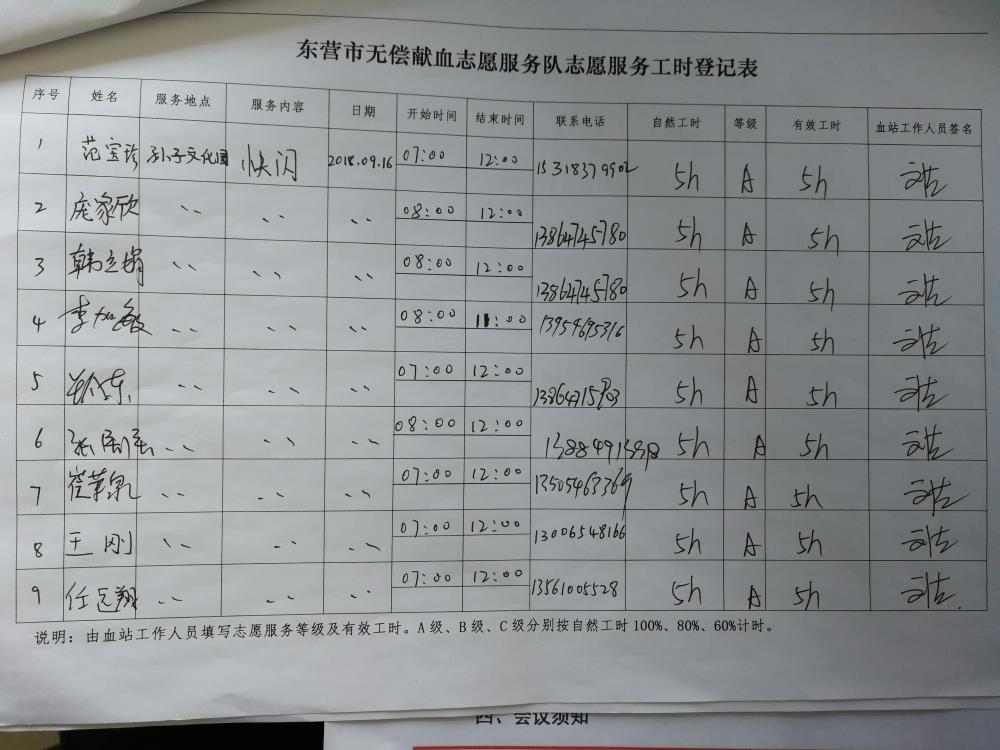 东营市无偿献血志愿服务队志愿服务工时登记表
序号 姓名 服务地点 服务内容 日期 开始时间 结束时间 联系电话 自然工时 等级 有效工时 血站工作人员签名
1 范宝珍 孙子文化园 快闪 2018.09.16 07:00 12:00 15318379902 5h A 5h
2 庞家欣 、、 、、 、、 08:00 12:00 13864745780 5h A 5h
3 韩立娟 、、 、、 、、 08:00 12:00 13864745780 5h A 5h
4 李加敏 、、 、、 、、 08:00 11:00 13954695316 5h A 5h
5 、、 、、 、、 07:00 12:00 5h A 5h
6 、、 、、 、、 08:00 12:00 5h A 5h
7 崔革泉 、、 、、 、、 07:00 12:00 13505463369 5h A 5h
8 王刚 、、 、、 、、 07:00 12:00 13006548166 5h A 5h
9 任远翔 、、 、、 、、 07:00 12:00 13561005528 5h A 5h
说明：由血站工作人员填写志愿服务等级及有效工时。A级、B级、C级分别按自然工时100%、80%、60%计时。
四、会议须知